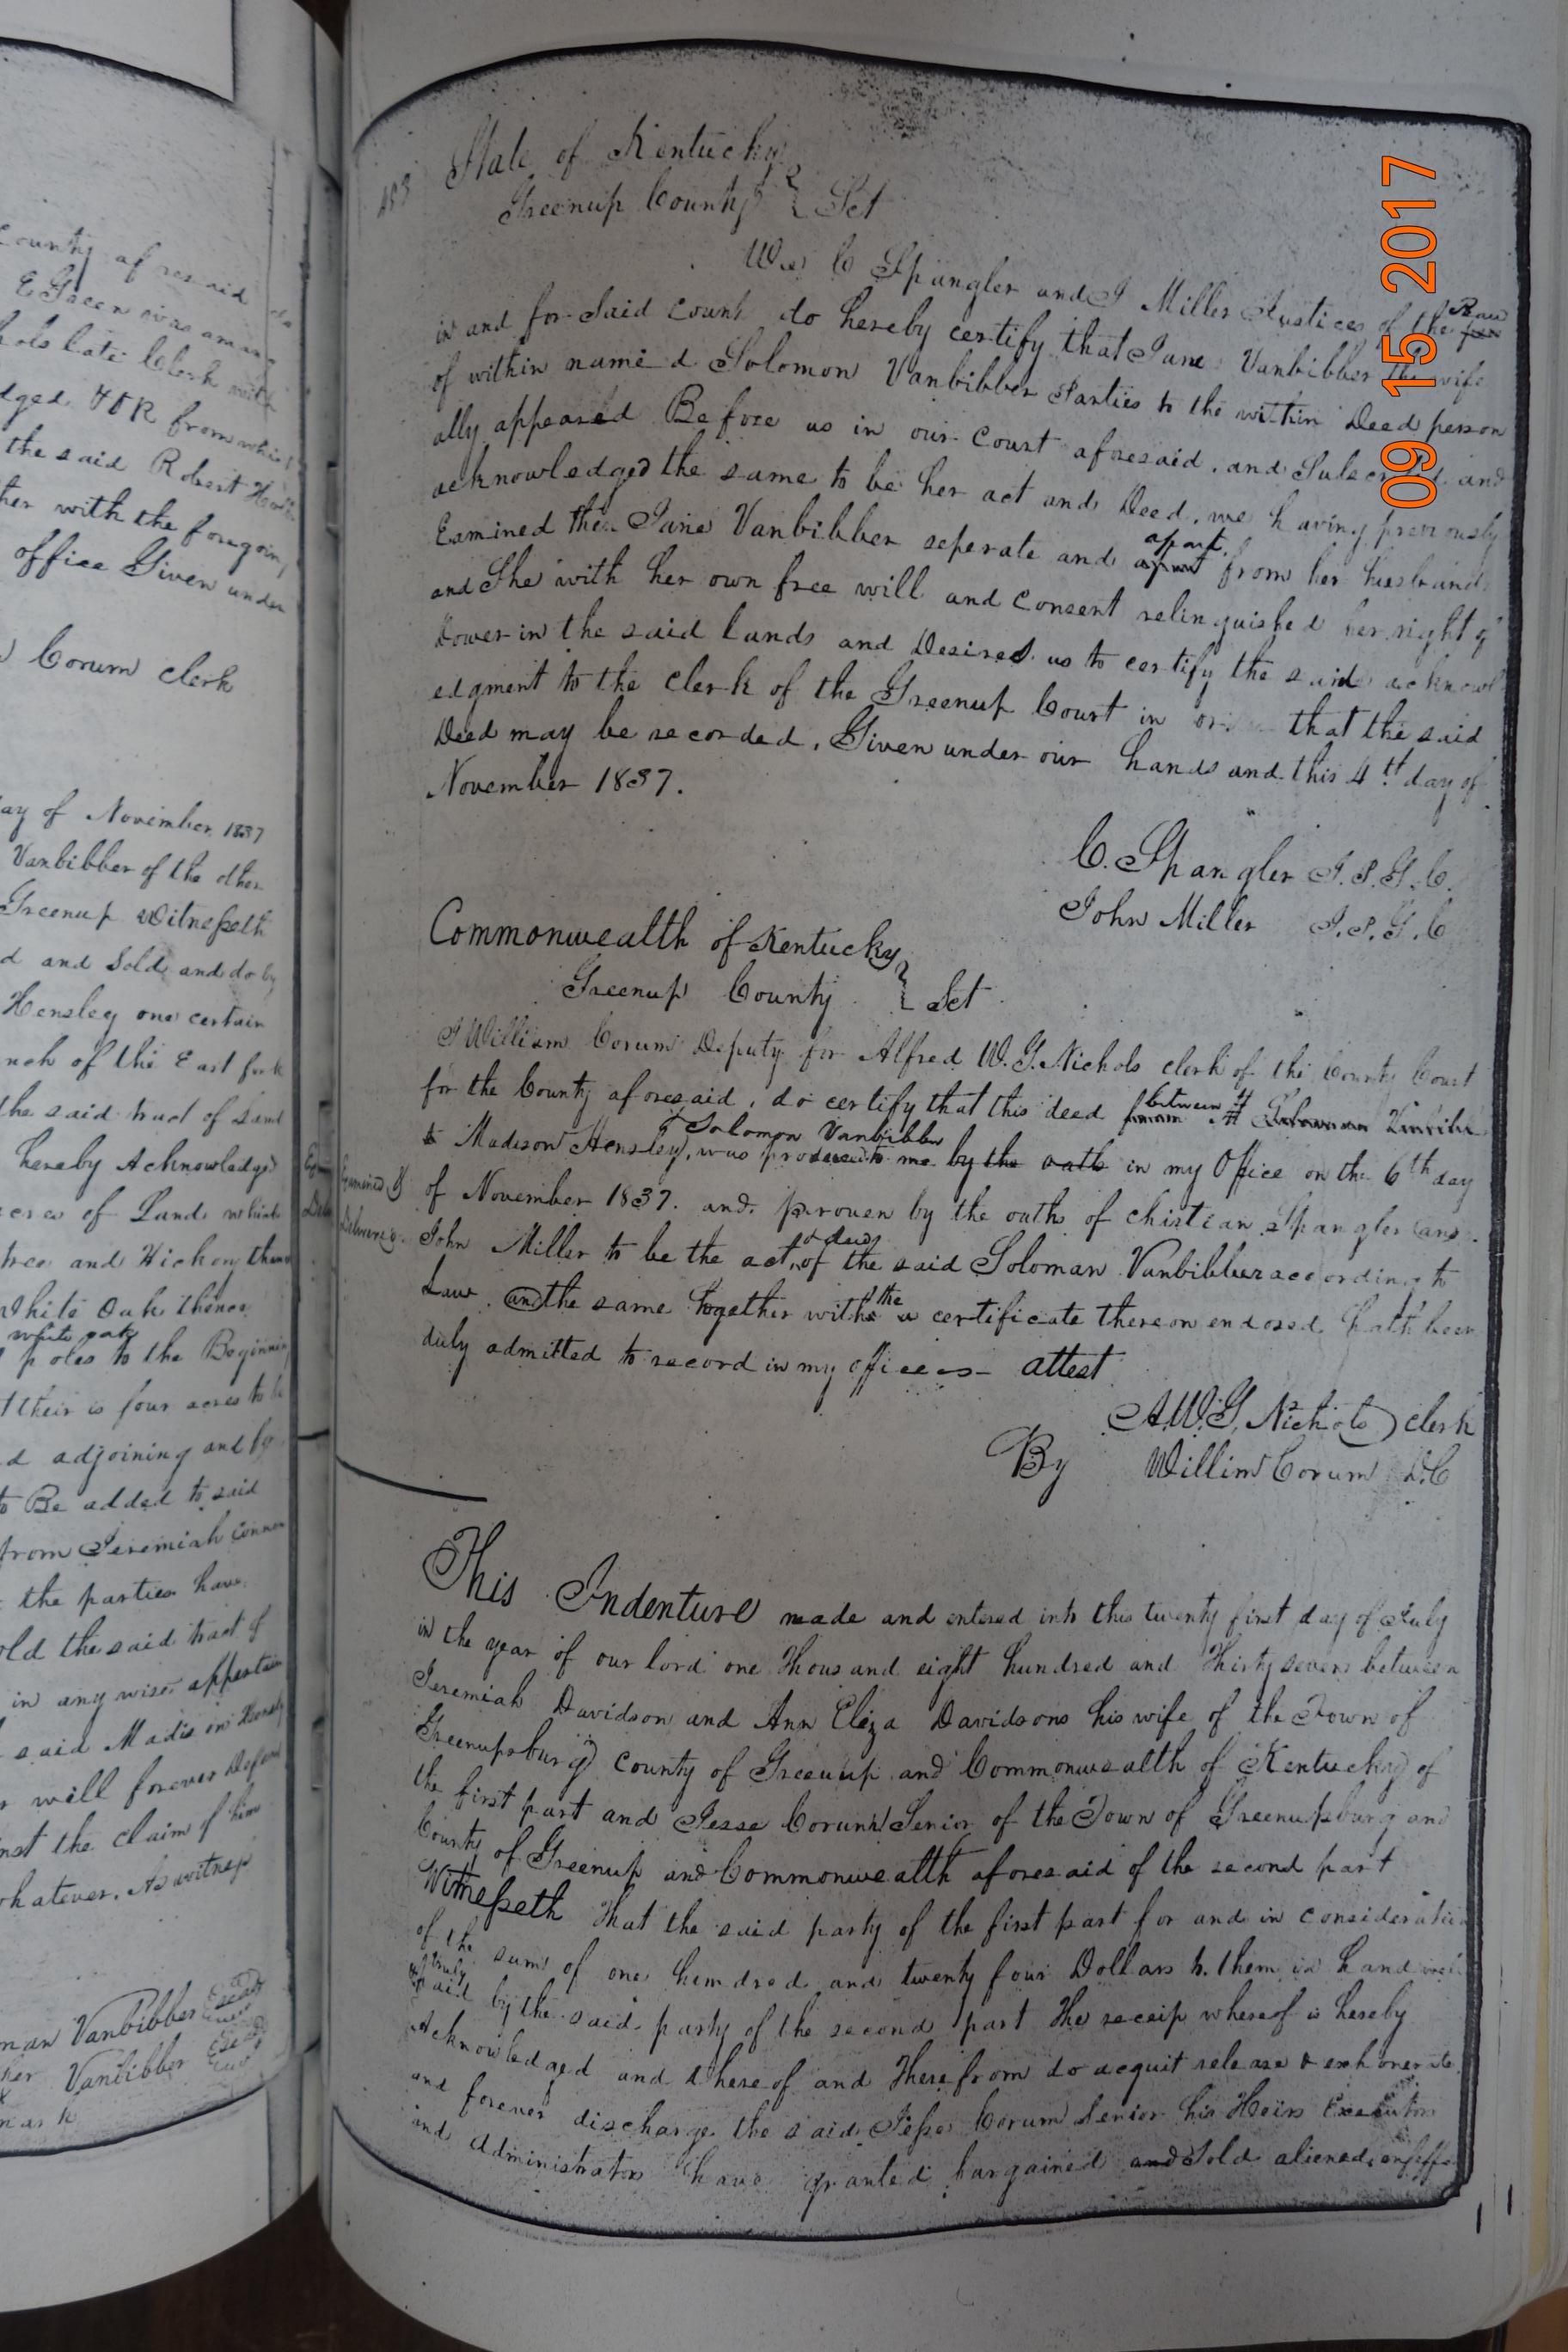 County aforesaid do
E Green
late Clerk with
the said Robert
her with the foregoing
office Given under
Corum clerk
day of November 1837
Vanbibber of the other
Greenup Witnesseth
d and Sold and do by
Hensley one certain
nch of the East fork
the said tract of Land
hereby Acknowledged
acres of Land which
tree and Hickory thence
White Oak thence
white oak
poles to the Beginning
their is four acres to be
d adjoining and
to Be added to said
from Jeremiah
the parties have
old the said tract of
in any wise
said Madison
will forever Defend
inst the claim of him
whatever. As witness
man Vanbibber Seal
her Vanbibber Seal
x
mark
483
State of Kentucky
Greenup County } Sct
We C Spangler and J Miller Justices of the Peace
in and for Said Count do hereby certify that Jane Vanbibber the wife
of within named Solomon Vanbibber Parties to the within Deed person
ally appeared Before us in our Court aforesaid, and and
acknowledged the same to be her act and Deed, we having previously
Examined the Jane Vanbibber seperate and apart from her husband
and She with her own free will and consent relinquished her right of
Dower in the said lands and Desired us to certify the said acknowl
edgment to the clerk of the Greenup Court in that the said
Deed may be recorded. Given under our hands and this 4th day of
November 1837.
C. Spangler J.P.G.C.
John Miller J.P.G.C
Commonwealth of Kentucky
Greenup County } Sct
I William Corum Deputy for Alfred W. G. Nichols clerk of the County Court
for the County aforesaid, do certify that this deed between
to Madison Hensley, & Solomon Vanbibber was produced to me by the oath in my Office on the 6th day
Examined &
Delivered
of November 1837. and proven by the oaths of Chistian Spangler and
John Miller to be the act & deed of the said Soloman Vanbibber according to
Law and the same together with the certificate thereon endosed hath been
duly admitted to record in my office attest
A.W.G. Nichols clerk
By Willim Corum D.C
This Indenture made and entered into this twenty first day of July
in the year of our lord one Thousand eight hundred and Thirty seven between
Jeremiah Davidson and Ann Eliza Davidsons his wife of the Town of
Greenupsburg County of Greenup and Commonwealth of Kentucky of
the first part and Jesse Corum Senior of the Town of Greenupsburg and
County of Greenup and Commonwealth aforesaid of the second part
Witnesseth That the said party of the first part for and in consideration
of the sum of one hundred and twenty four Dollars to them in hand well
& truly paid by the said party of the second part the receip whereof is hereby
Acknowledged and thereof and Therefrom do acquit release & exhonerate
and forever discharge the said Jesse Corum Senior his Heirs Executors
and Administrators have granted bargained and Sold aliened, enfeffe
09 15 2017